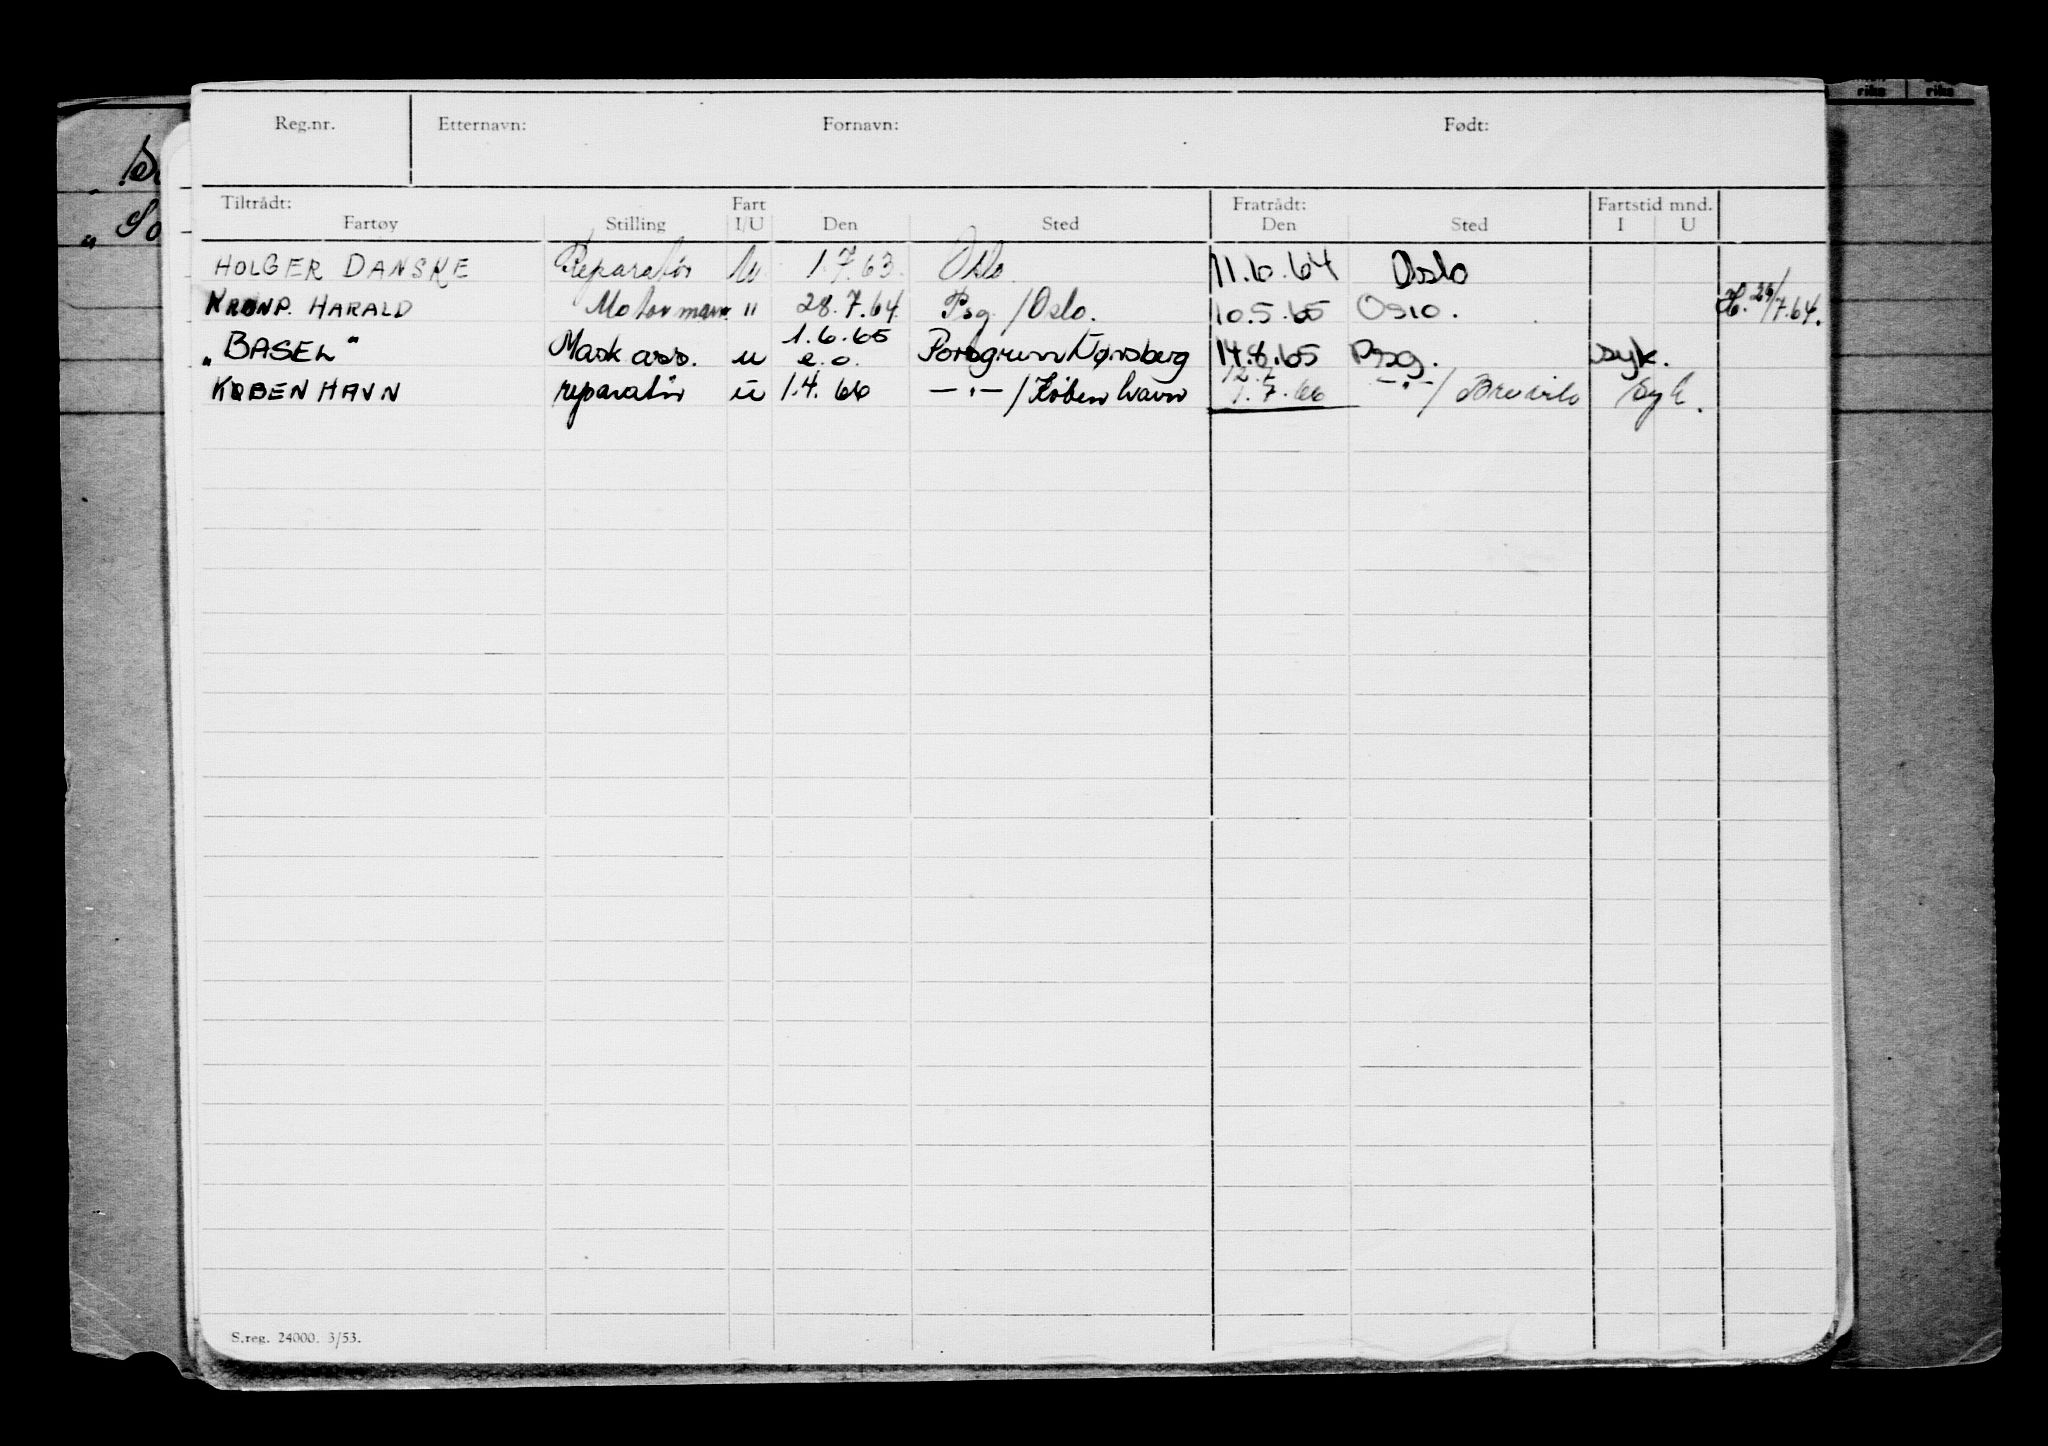 Reg.nr. Etternavn: Fornavn: Født:
Tiltrådt: Fart Fratrådt: Fartstid mnd.
Fartøy Stilling I/U Den Sted Den Sted I U
HOLGER DANSKE Reparatør U 1.7.63. Oslo 11.6.64 Oslo
KRONP. HARALD Motormann " 28.7.64. Psg/Oslo. 10.5.65 Oslo. 7.64.
1.6.65
"BASEL" Mask ass. u e.o. Porsgrunn/Tønsberg 14.6.65 Psg. syk.
12.7
KØBENHAVN reparatør u 1.4.66 —"—/København 1.7.66 —"—/ syk.
S.reg. 24000. 3/53.